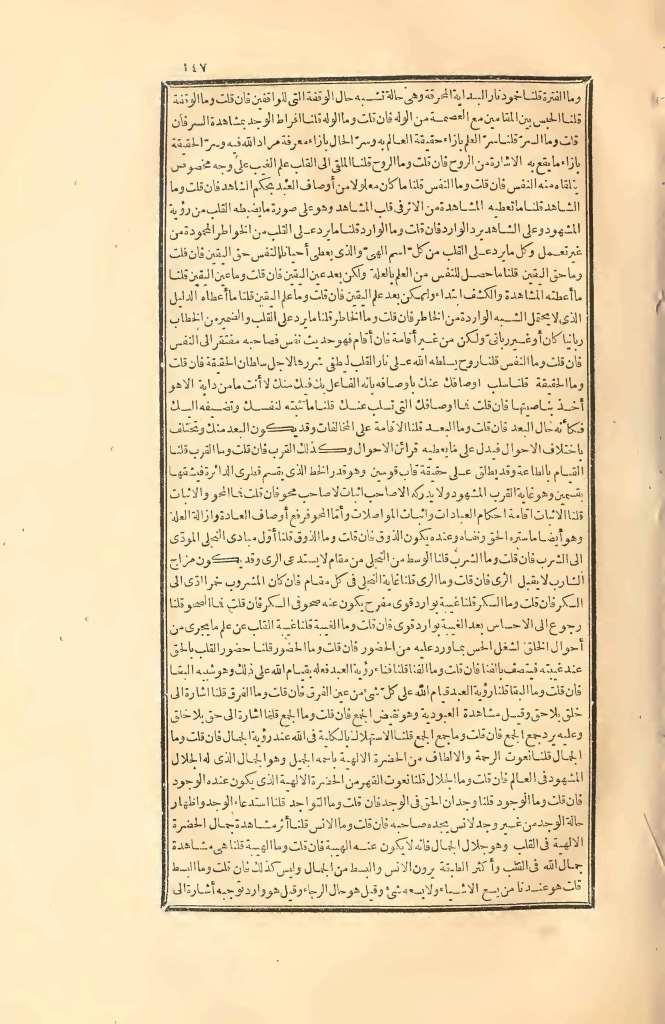 ١٤٧
وما الفترة قلنا خمود نار البداية المحرقة وهي حالة تشبه حال الوقفة التي للواقفين فان قلت وما الوقفة
قلنا الحبس بين المقامين مع العصمة من الوله فان قلت وما الوله قلنا افراط الوجد بمشاهدة السر فان
قلت وما السر قلنا سر العلم بازاء حقيقة العالم به وسر الحال بازاء معرفة مراد الله فيه وسر الحقيقة
بازاء ما يقع به الاشارة من الروح فان قلت وما الروح قلنا الملقى الى القلب علم الغيب على وجه مخصوص
يتلقاه منه النفس فان قلت وما النفس قلنا ما كان معلولا من أوصاف العبد بحكم الشاهد فان قلت وما
الشاهد قلنا ما تعطيه المشاهدة من الاثر في قلب المشاهد وهو على صورة ما يضبطه القلب من رؤية
المشهود وعلى الشاهد يرد الوارد فان قلت وما الوارد قلنا ما يرد على القلب من الخواطر المحمودة من
غير تعمل وكل ما يرد على القلب من كل اسم الهي والذي يعطى أحيانا النفس حق اليقين فان قلت
وما حق اليقين قلنا ما حصل للنفس من العلم بالعلة ولكن بعد عين اليقين فان قلت وما عين اليقين قلنا
ما أعطته المشاهدة والكشف ابتداء ولكن بعد علم اليقين فان قلت وما علم اليقين قلنا ما أعطاه الدليل
الذي لا يحتمل الشبه الواردة من الخاطر فان قلت وما الخاطر قلنا ما يرد على القلب والضمير من الخطاب
ربانيا كان أو غير رباني ولكن من غير أقامة فان أقام فهو حديث نفس فصاحبه مفتقر الى النفس
فان قلت وما النفس قلنا روح يسلطه الله على نار القلب ليطفى شررها لاجل سلطان الحقيقة فان قلت
وما الحقيقة قلنا سلب اوصافك عنك باوصافه بانه الفاعل بك فيك منك لا أنت ما من دابة الا هو
آخذ بناصيتها فان قلت فما اوصافك التي تسلب عنك قلنا ما تثبته لنفسك وتضيفه اليك
فكأنه حال البعد فان قلت وما البعد قلنا الاقامة على المخالفات وقد يكون البعد منك ويختلف
باختلاف الاحوال فيدل على ما يعطيه قرائن الاحوال وكذلك القرب فان قلت وما القرب قلنا
القيام بالطاعة وقد يطلق على حقيقة قاب قوسين وهو قدر الخط الذي يقسم قطرى الدائرة فيشقها
بقسمين وهو غاية القرب المشهود ولا يدركه الا صاحب اثبات لا صاحب محو فان قلت فما المحو والاثبات
قلنا الاثبات اقامة احكام العبادات واثبات المواصلات وأما المحو فرفع أوصاف العادة وازالة العلة
وهو أيضا ما ستره الحق ونفاه وعنده يكون الذوق فان قلت وما الذوق قلنا أول مبادى التجلى المودى
الى الشرب فان قلت وما الشرب قلنا الوسط من التجلى من مقام لا يستدعى الرى وقد يكون مزاج
الشارب لا يقبل الرى فان قلت وما الرى قلنا غاية التجلى في كل مقام فان كان المشروب خمرا ادى الى
السكر فان قلت وما السكر قلنا غيبة بوارد قوى مفرح يكون عنه صحو فى السكر فان قلت فما الصحو قلنا
رجوع الى الاحساس بعد الغيبة بوارد قوى فان قلت وما الغيبة قلنا غيبة القلب عن علم ما يجرى من
أحوال الخلق لشغل الحس بما ورد عليه من الحضور فان قلت وما الحضور قلنا حضور القلب بالحق
عند غيبته فيتصف بالفنا فان قلت وما الفنا قلنا فناء رؤية العبد فعله بقيام الله على ذلك وهو شبه البقا
فان قلت وما البقا قلنا رؤية العبد قيام الله على كل شئ من عين الفرق فان قلت وما الفرق قلنا اشارة الى
خلق بلا حق وقيل مشاهدة العبودية وهو نقيض الجمع فان قلت وما الجمع قلنا اشارة الى حق بلا خلق
وعليه يرد جمع الجمع فان قلت وما جمع الجمع قلنا الاستهلاك بالكلية فى الله عند رؤية الجمال فان قلت وما
الجمال قلنا نعوت الرحمة والالطاف من الحضرة الالهية باسمه الجميل وهو الجمال الذى له الجلال
المشهود فى العالم فان قلت وما الجلال قلنا نعوت القهر من الحضرة الالهية الذى يكون عنده الوجود
فان قلت وما الوجود قلنا وجدان الحق فى الوجد فان قلت وما التواجد قلنا استدعاء الوجد واظهار
حالة الوجد من غير وجد لانس يجده صاحبه فان قلت وما الانس قلنا أثر مشاهدة جمال الحضرة
الالهية فى القلب وهو جلال الجمال فانه لا يكون عنه الهيبة فان قلت وما الهيبة قلنا هى مشاهدة
جمال الله فى القلب وأكثر الطبقة يرون الانس والبسط من الجمال وليس كذلك فان قلت وما البسط
قلت هو عندنا من يسع الاشياء ولا يسعه شئ وقيل هو حال الرجاء وقيل هو وارد توجبه أشارة الى